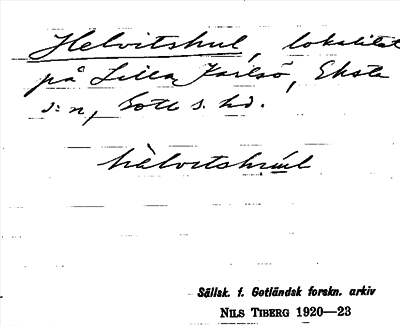 Helvitshul, lokalitet
på Lilla Karlsö, Eksta
s:n, Gotl. s. hd.
hàlvitshúul
Sällsk. f. Gotländsk forskn. arkiv
NILS TIBERG 1920—23